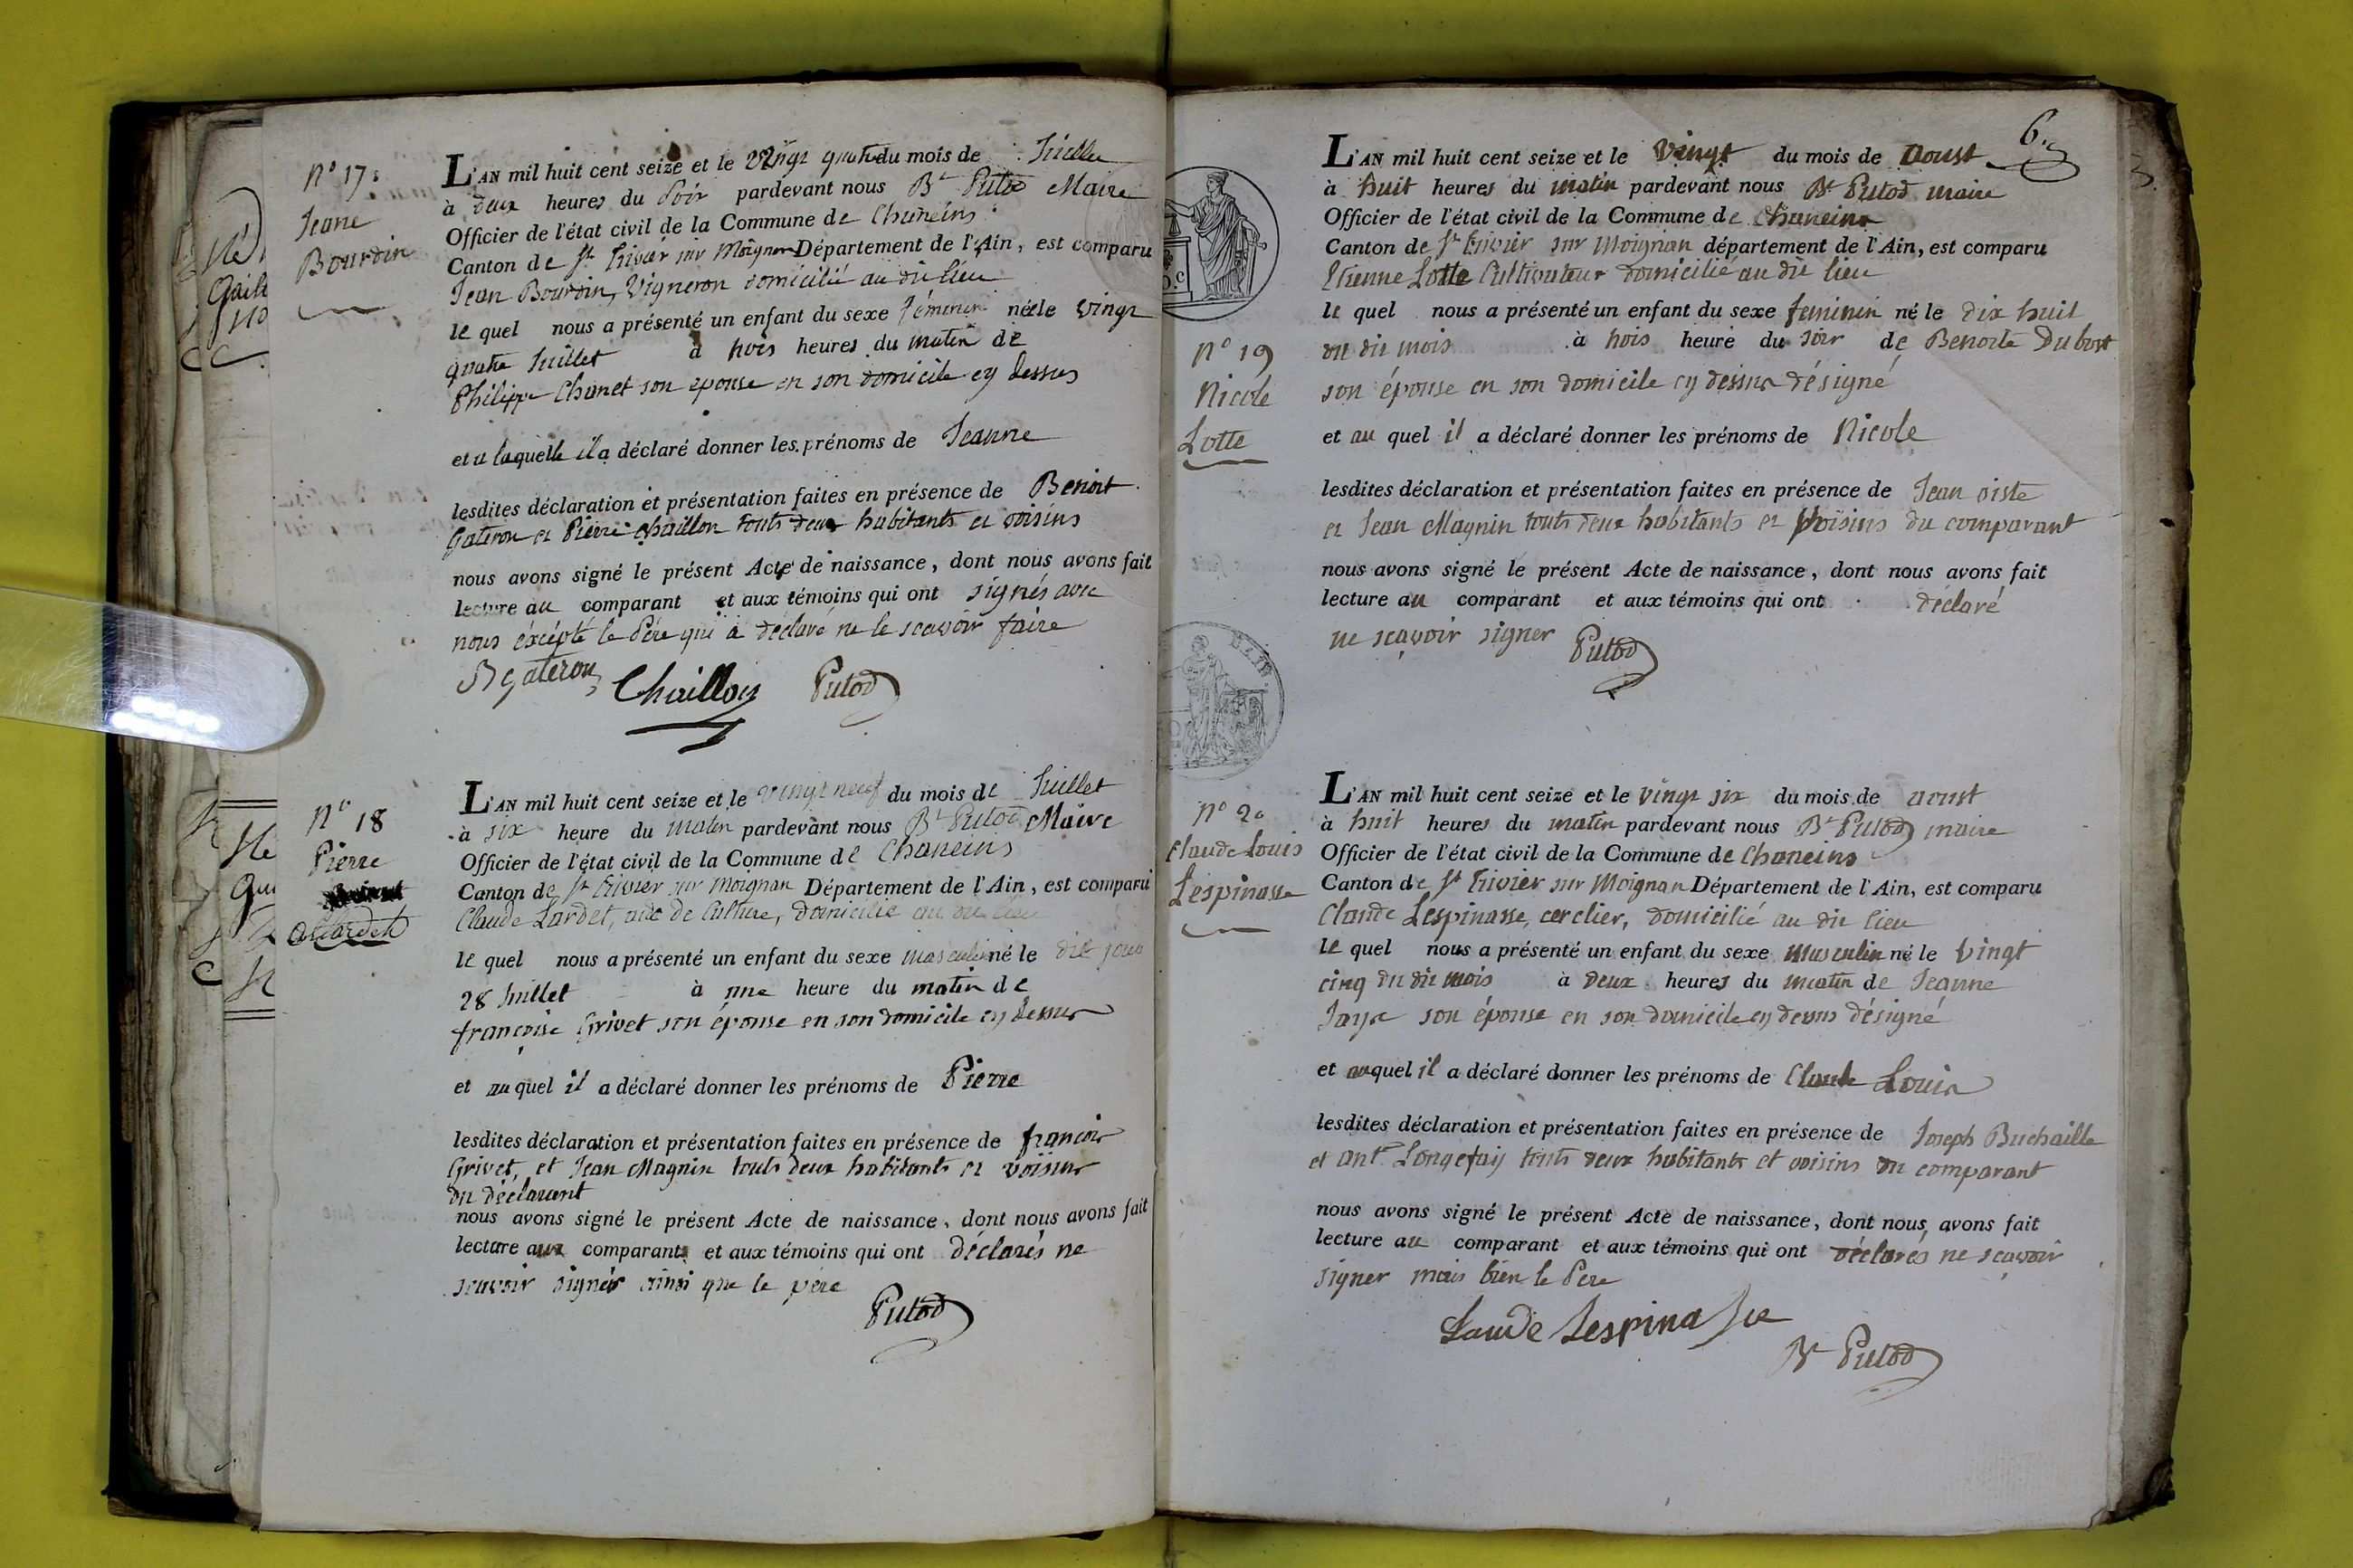 N° 17.
Jeane
Bourdin
L'AN mil huit cent seize et le vingt quatre du mois de Juillet
à deux heures du soir pardevant nous Bt Putod Maire
Officier de l'état civil de la Commune de Chaneins
Canton de St Trivier sur Moignan Département de l'Ain, est comparu
Jean Bourdin, Vigneron domicilié au dit lieu
le quel nous a présenté un enfant du sexe féminin née le vingt
quatre Juillet à trois heures du matin de
Philippe Chanet son epouse en son domicile cy dessus
et a laquelle il a déclaré donner les prénoms de Jeanne
lesdites déclaration et présentation faites en présence de Benoit
Gateron et Pierre Chaillon touts deux habitants et voisins
nous avons signé le présent Acte de naissance, dont nous avons fait
lecture au comparant et aux témoins qui ont signés avec
nous éxcépté le Pére qui a declaré ne le scavoir faire
B gateron Chaillon Putod
N° 18
Pierre
L'AN mil huit cent seize et le vingt neuf du mois de Juillet
à six heure du matin pardevant nous Bt Putod Maire
Officier de l'état civil de la Commune de Chaneins
Canton de St Trivier sur Moignan Département de l'Ain, est comparu
Claude Lardet, aide de Culture, domicilié au dit lieu
le quel nous a présenté un enfant du sexe masculin né le dit jour
28 Juillet à une heure du matin de
françoise Grivet son épouse en son domicile cy dessus
et au quel il a déclaré donner les prénoms de Pierre
lesdites déclaration et présentation faites en présence de françois
Grivet, et Jean Magnin touts deux habitants et voisins
du déclarant
nous avons signé le présent Acte de naissance, dont nous avons fait
lecture aux comparants et aux témoins qui ont déclarés ne
scavoir signér ainsi que le père
Putod
6.
L'AN mil huit cent seize et le vingt du mois de aoust
à huit heures du matin pardevant nous Bt Putod maire
Officier de l'état civil de la Commune de Chaneins
Canton de St Trivier sur Moignan département de l'Ain, est comparu
Etienne Lotte Cultivateur domicilié au dit lieu
le quel nous a présenté un enfant du sexe feminin né le dix huit
du dit mois à trois heure du soir de Benoite Dubost
son épouse en son domicile cy dessus désigné
N° 19
Nicole
Lotte
et au quel il a déclaré donner les prénoms de Nicole
lesdites déclaration et présentation faites en présence de Jean
et Jean Magnin touts deux habitants et voisins du comparant
nous avons signé le présent Acte de naissance, dont nous avons fait
lecture au comparant et aux témoins qui ont déclaré
ne sçavoir signer Putod
N° 20
Claude Louis
Lespinasse
L'AN mil huit cent seize et le vingt six du mois de aoust
à huit heures du matin pardevant nous Bt Putod maire
Officier de l'état civil de la Commune de Chaneins
Canton de St Trivier sur Moignan Département de l'Ain, est comparu
Claude Lespinasse, cerclier, domicilié au dit lieu
le quel nous a présenté un enfant du sexe masculin né le vingt
cinq du dit mois à deux heures du matin de Jeanne
Jaye son épouse en son domicile cy dessus désigné
et auquel il a déclaré donner les prénoms de Claude Louis
lesdites déclaration et présentation faites en présence de Joseph Buchaille
et ant. Longefay touts deux habitants et voisins du comparant
nous avons signé le présent Acte de naissance, dont nous avons fait
lecture au comparant et aux témoins qui ont déclarés ne sçavoir
signer mais bien le Pere
Laude Lespinasse
Bt Putod